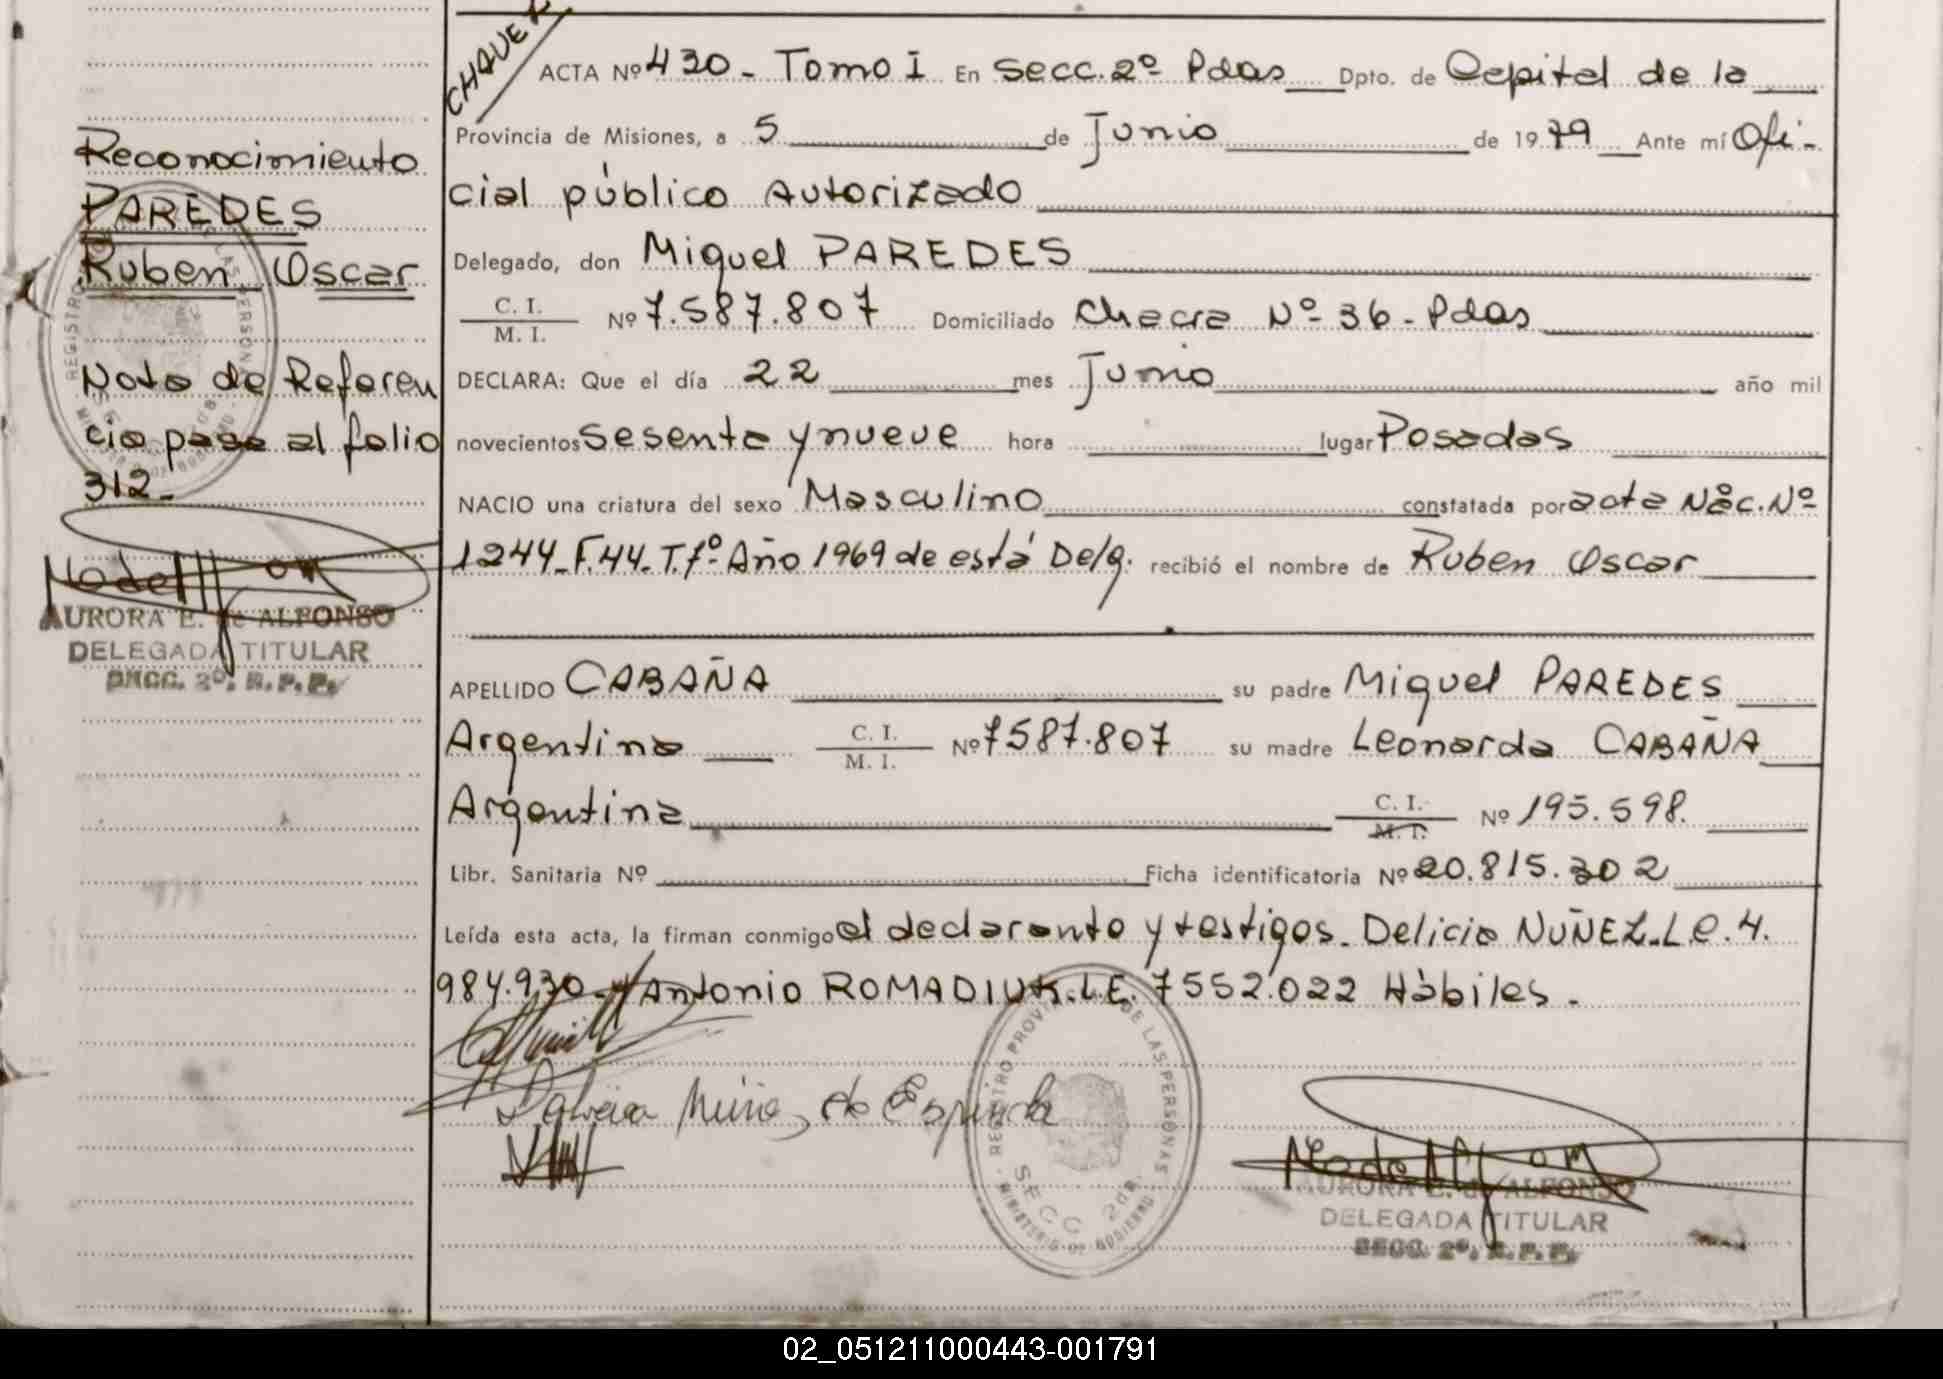 CHAQUE
ACTA Nº 430 - Tomo I En Secc. 2º Pdas Dpto. de Capital de la
Provincia de Misiones, a 5 de Junio de 1979 Ante mí Ofi-
cial público Autorizado
Delegado, don Miguel PAREDES
C. I. / M. I. Nº 7.587.807 Domiciliado Chacra Nº 36 - Pdas
DECLARA: Que el día 22 mes Junio año mil
novecientos sesenta y nueve hora lugar Posadas
NACIO una criatura del sexo Masculino constatada por acta Nac. Nº
1244 - F. 44 - T. 1º Año 1969 de está Delg. recibió el nombre de Ruben Oscar
APELLIDO CABAÑA su padre Miguel PAREDES
Argentino C. I. / M. I. Nº 7587.807 su madre Leonarda CABAÑA
Argentina C. I. / M. I. Nº 195.598.
Libr. Sanitaria Nº Ficha identificatoria Nº 20.815.302
Leída esta acta, la firman conmigo el declarante y testigos - Delicio NUÑEZ - L.E. 4.
984.930 - y Antonio ROMADIUK - L.E. 7552.022 Hábiles -
REGISTRO PROVINCIAL DE LAS PERSONAS
SECC 2da.
MINISTERIO DE GOBIERNO
AURORA E. de ALFONSO
DELEGADA TITULAR
SECC. 2º. R. P. P.
Reconocimiento
PAREDES
Ruben Oscar
Nota de Referen
cia pasa al folio
312 -
AURORA E. de ALFONSO
DELEGADA TITULAR
SECC. 2º. R. P. P.
02_051211000443-001791